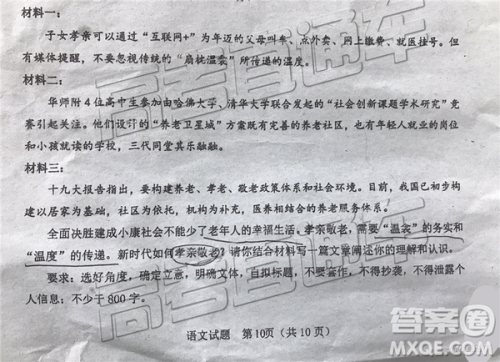 材料一：
子女孝亲可以通过“互联网+”为年迈的父母叫车、点外卖、网上缴费、就医挂号。但
有媒体提醒，不要忽视传统的“扇枕温衾”所传递的温度。
材料二：
华师附4位高中生参加由哈佛大学、清华大学联合发起的“社会创新课题学术研究”竞
赛引起关注。他们设计的“养老卫星城”方案既有完善的养老社区，也有年轻人就业的岗位
和小孩就读的学校，三代同堂其乐融融。
材料三：
十九大报告指出，要构建养老、孝老、敬老政策体系和社会环境。目前，我国已初步构
建以居家为基础，社区为依托，机构为补充，医养相结合的养老服务体系。
全面决胜建成小康社会不能少了老年人的幸福生活。孝亲敬老，需要“温衾”的务实和
“温度”的传递。新时代如何孝亲敬老？请你结合材料写一篇文章阐述你的理解和认识。
要求：选好角度，确定立意，明确文体，自拟标题，不要套作，不得抄袭，不得泄露个
人信息；不少于800字。
语文试题 第10页（共10页）
高考直通车
答案圈
MXQE.COM